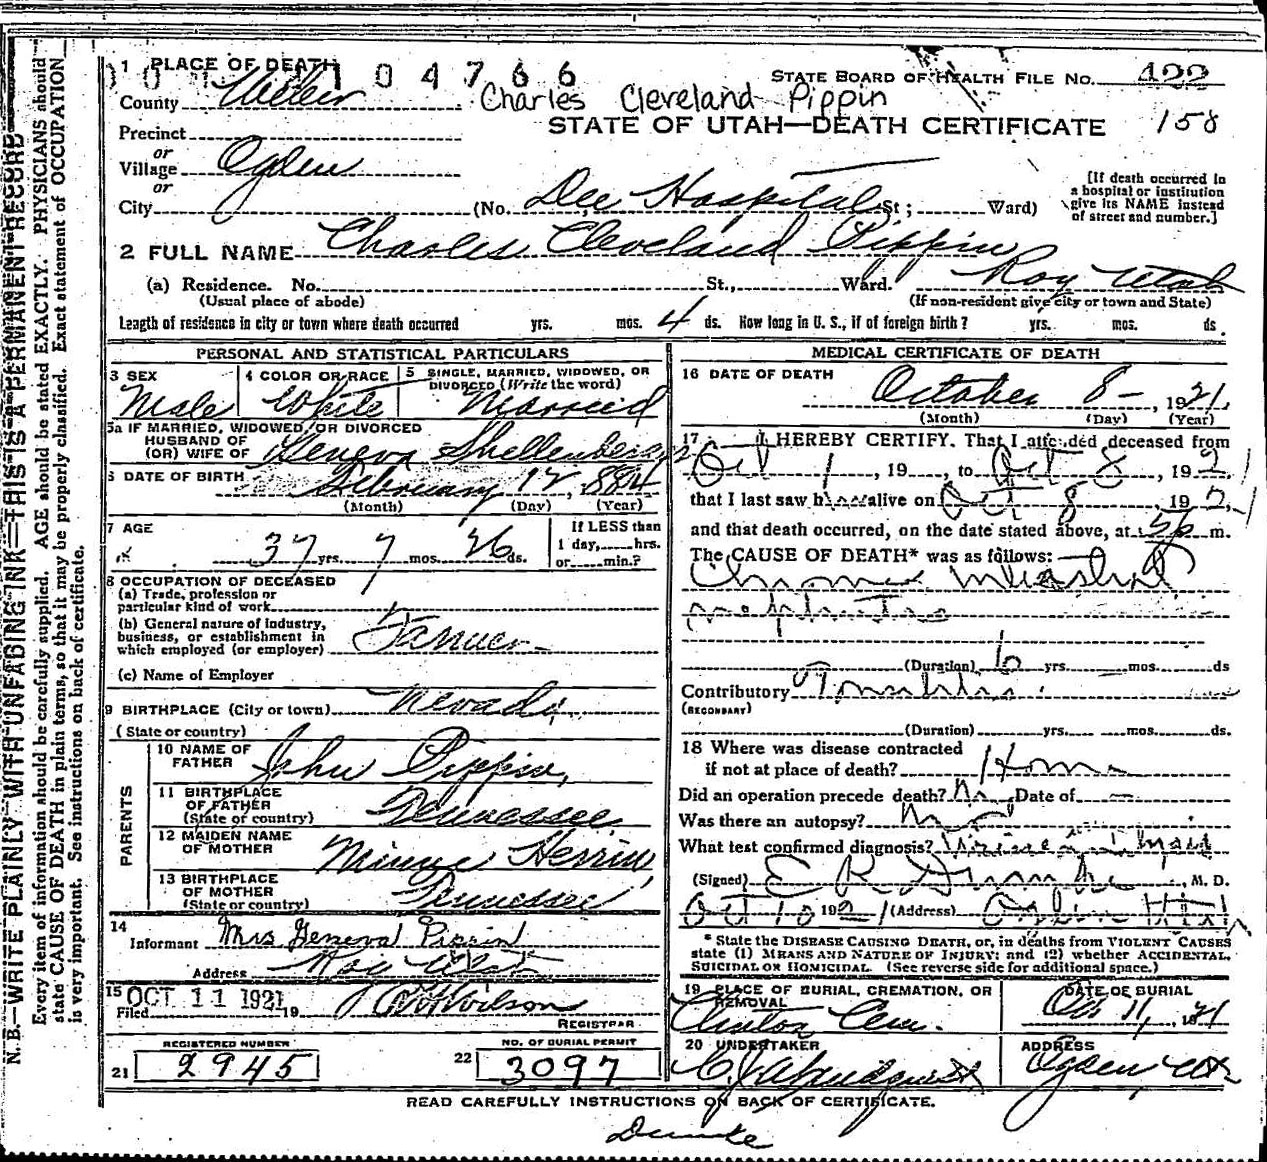 N. B.—WRITE PLAINLY WITH UNFADING INK—THIS IS A PERMANENT RECORD
Every item of information should be carefully supplied. AGE should be stated EXACTLY. PHYSICIANS should
state CAUSE OF DEATH in plain terms, so that it may be properly classified. Exact statement of OCCUPATION
is very important. See instructions on back of certificate.
1 PLACE OF DEATH 104766
STATE BOARD OF HEALTH FILE NO. 422
County Weber Charles Cleveland Pippin
STATE OF UTAH—DEATH CERTIFICATE 158
Precinct
or
Village Ogden
or
City (No. Dee Hospital St; Ward)
[If death occurred in
a hospital or institution
give its NAME instead
of street and number.]
2 FULL NAME Charles Cleveland Pippin
(a) Residence. No. St., Ward. Roy Utah
(Usual place of abode) (If non-resident give city or town and State)
Length of residence in city or town where death occurred yrs. mos. 4 ds. How long in U. S., if of foreign birth? yrs. mos. ds.
PERSONAL AND STATISTICAL PARTICULARS
3 SEX 4 COLOR OR RACE 5 SINGLE, MARRIED, WIDOWED, OR
DIVORCED (Write the word)
Male White Married
5a IF MARRIED, WIDOWED, OR DIVORCED
HUSBAND OF
(OR) WIFE OF Geneva Shellenberger
6 DATE OF BIRTH February 12, 1884
(Month) (Day) (Year)
7 AGE If LESS than
37 yrs. 7 mos. 26 ds. 1 day, hrs.
or min.?
8 OCCUPATION OF DECEASED
(a) Trade, profession or
particular kind of work
(b) General nature of industry,
business, or establishment in
which employed (or employer) Farmer
(c) Name of Employer
9 BIRTHPLACE (City or town) Nevada
(State or country)
PARENTS
10 NAME OF
FATHER John Pippin
11 BIRTHPLACE
OF FATHER
(State or country) Tennessee
12 MAIDEN NAME
OF MOTHER Minnie Herrin
13 BIRTHPLACE
OF MOTHER
(State or country) Tennessee
14
Informant Mrs Geneva Pippin
Address Roy Utah
15 OCT 11 1921
Filed 19 Wilson
REGISTRAR
REGISTERED NUMBER NO. OF BURIAL PERMIT
21 2945 22 3097
MEDICAL CERTIFICATE OF DEATH
16 DATE OF DEATH
October 8-, 1921.
(Month) (Day) (Year)
17 I HEREBY CERTIFY, That I attended deceased from
Oct 1, 19, to Oct 8, 1921
that I last saw h alive on Oct 8, 1921
and that death occurred, on the date stated above, at m.
The CAUSE OF DEATH* was as follows:
Chronic
nephritis
(Duration) yrs. mos. ds
Contributory
(SECONDARY)
(Duration) yrs. mos. ds.
18 Where was disease contracted
if not at place of death? Home
Did an operation precede death? No Date of —
Was there an autopsy? No
What test confirmed diagnosis?
(Signed) E R Dumke, M. D.
Oct 10 1921 (Address) Ogden Utah
* State the DISEASE CAUSING DEATH, or, in deaths from VIOLENT CAUSES
state (1) MEANS AND NATURE OF INJURY; and (2) whether ACCIDENTAL,
SUICIDAL OR HOMICIDAL. (See reverse side for additional space.)
19 PLACE OF BURIAL, CREMATION, OR
REMOVAL DATE OF BURIAL
Clinton Cem. Oct 11, 1921
20 UNDERTAKER ADDRESS
Ogden Utah
READ CAREFULLY INSTRUCTIONS ON BACK OF CERTIFICATE.
Dumke